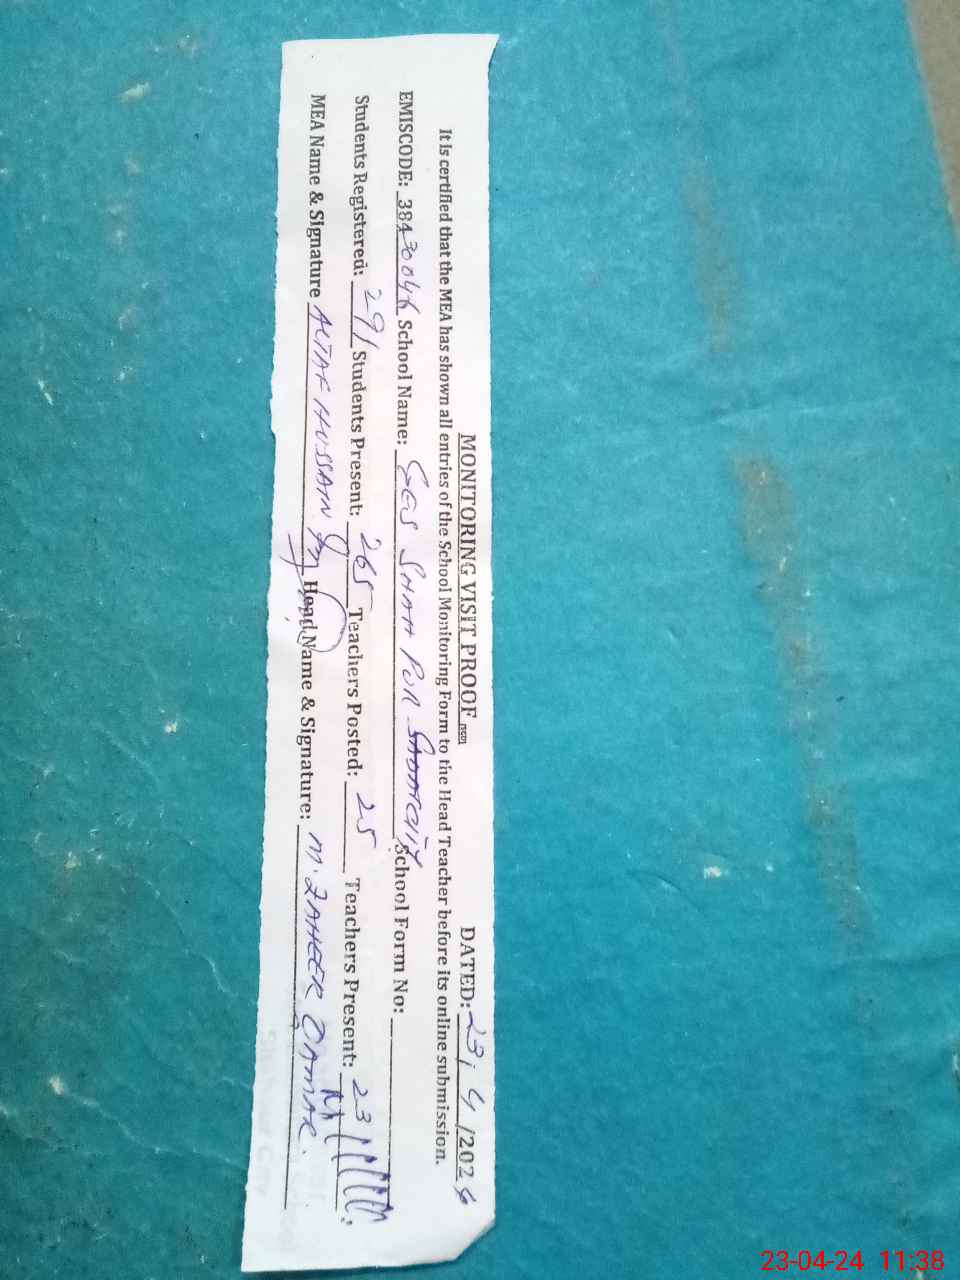 MONITORING VISIT PROOF DATED: 23/4/2024
It is certified that the MEA has shown all entries of the School Monitoring Form to the Head Teacher before its online submission.
EMISCODE: 38430046 School Name: GES SHAH PUR School Form No:
Students Registered: 291 Students Present: 265 Teachers Posted: 25 Teachers Present: 23
MEA Name & Signature ALTAF HUSSAIN Head Name & Signature: M. ZAHEER QAMAR.
23-04-24 11:38